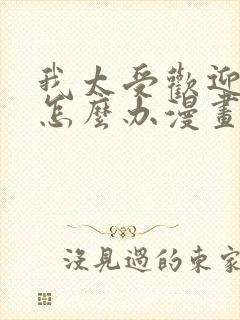 我太受歡迎
怎麼办漫畫
沒見過的東家